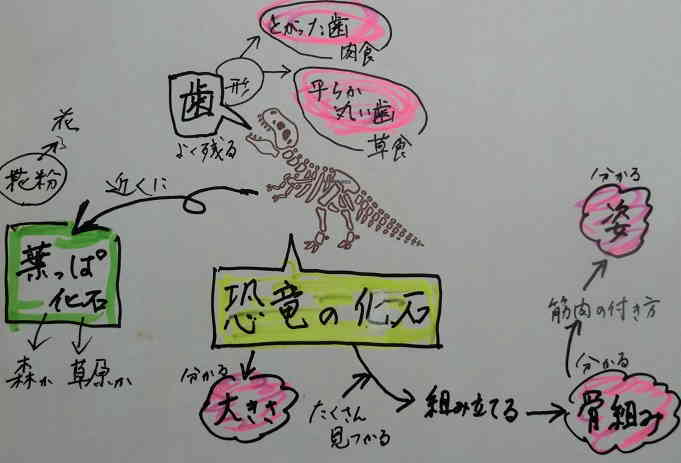 とがった歯
肉食
形
歯
平らか
丸い歯
草食
よく残る
花
花粉
近くに
葉っぱ
化石
森か
草原か
恐竜の化石
分かる
大きさ
たくさん
見つかる
組み立てる
分かる
骨組み
筋肉の付き方
分かる
姿